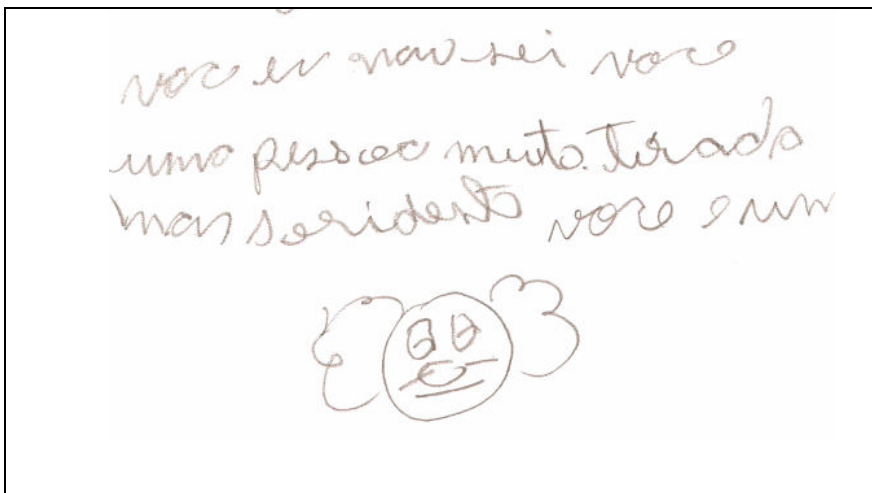 voce eu nao sei voce
uma pessoa muto tirado
mas soridente voce e um